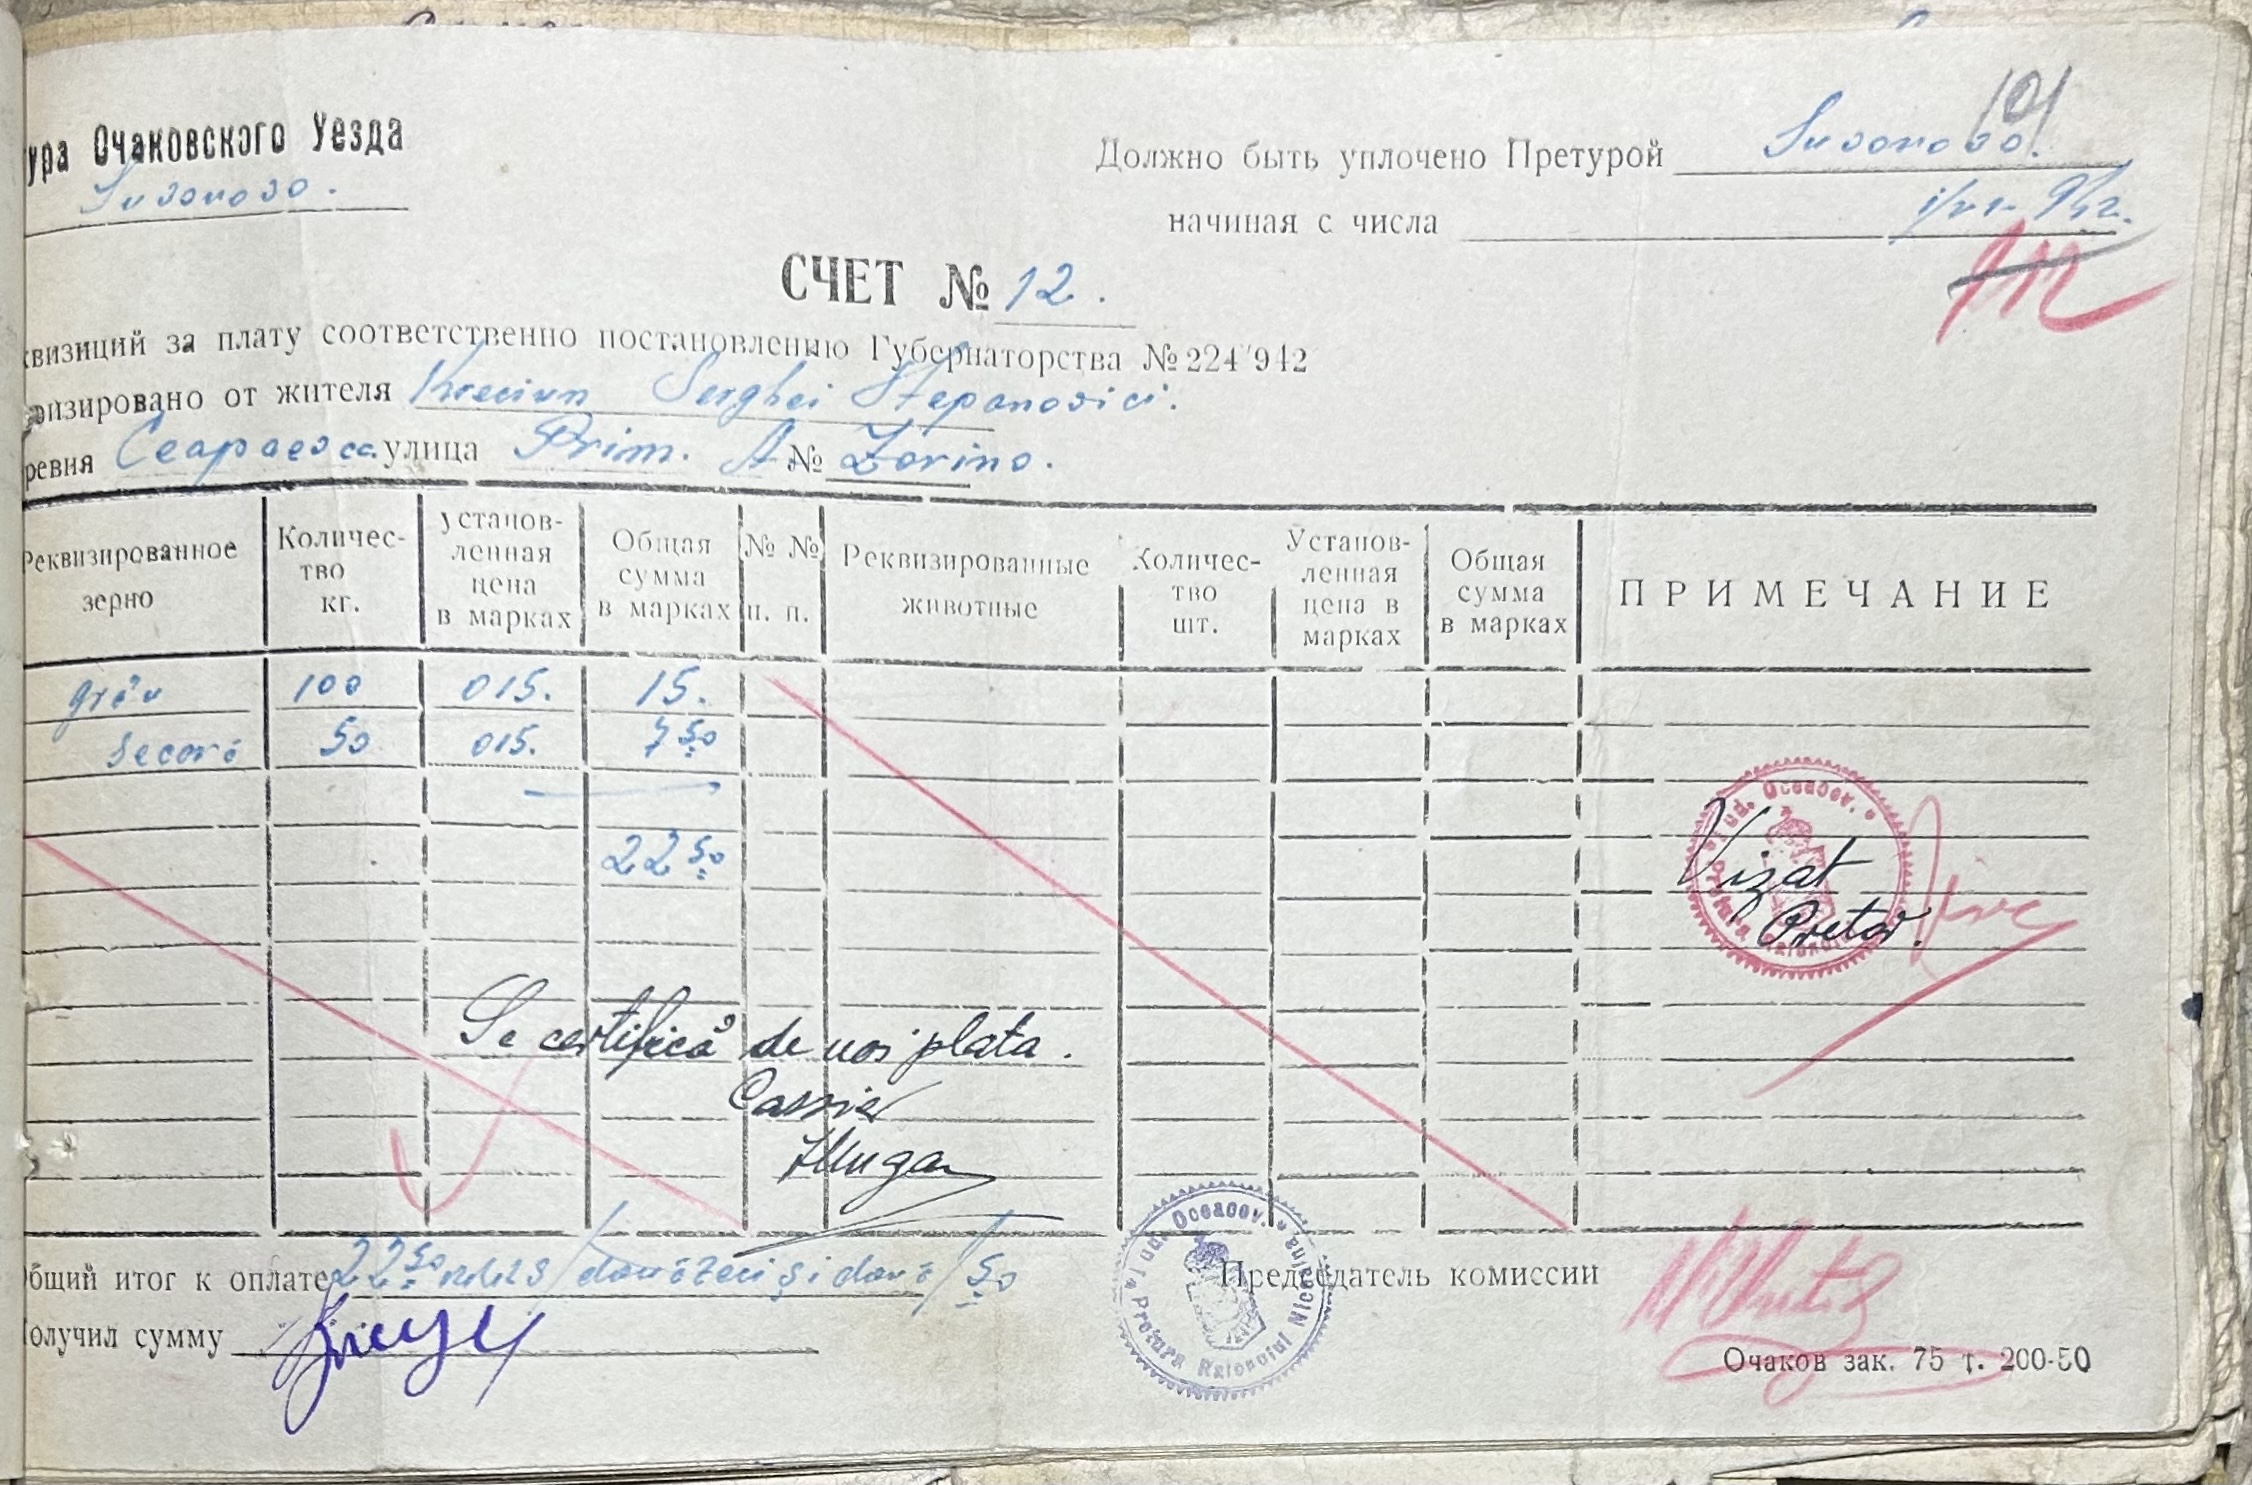 101
тура Очаковского Уезда
Suvorovo.
Должно быть уплочено Претурой Suvorovo.
начиная с числа
112
СЧЕТ № 12.
квизиций за плату соответственно постановлению Губернаторства № 224/942
визировано от жителя Kreciun Serghei Stepanovici.
ревня Ceapaevca улица Prim. A № Zorino.
Реквизированное зерно
Количество кг.
Установленная цена в марках
Общая сумма в марках
№ № п. п.
Реквизированные животные
Количество шт.
Установленная цена в марках
Общая сумма в марках
ПРИМЕЧАНИЕ
grâu 100 015. 15.
secară 50 015. 7 50
22 50
Jud. Oceacov. Pretura Raionului
Vizat
Pretor.
Se certifică de noi plata.
Cassier
Общий итог к оплате 22 50 /douăzeci și două/ 50
Jud. Oceacov. Pretura Raionului
Председатель комиссии
Получил сумму
Очаков зак. 75 т. 200-50